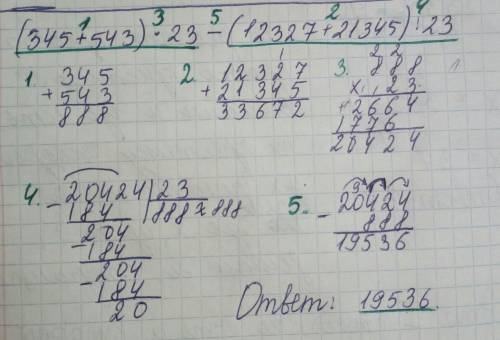 (345+543)·23-(12327+21345):23
1 3 5 2 4
1. 345
+543
888
2. 12327
+21345
33672
3. 888
×23
+2664
1776
20424
4. 20424|23
-184 888
204
-184
204
-184
20
5. 20424
-888
19536
Ответ: 19536.